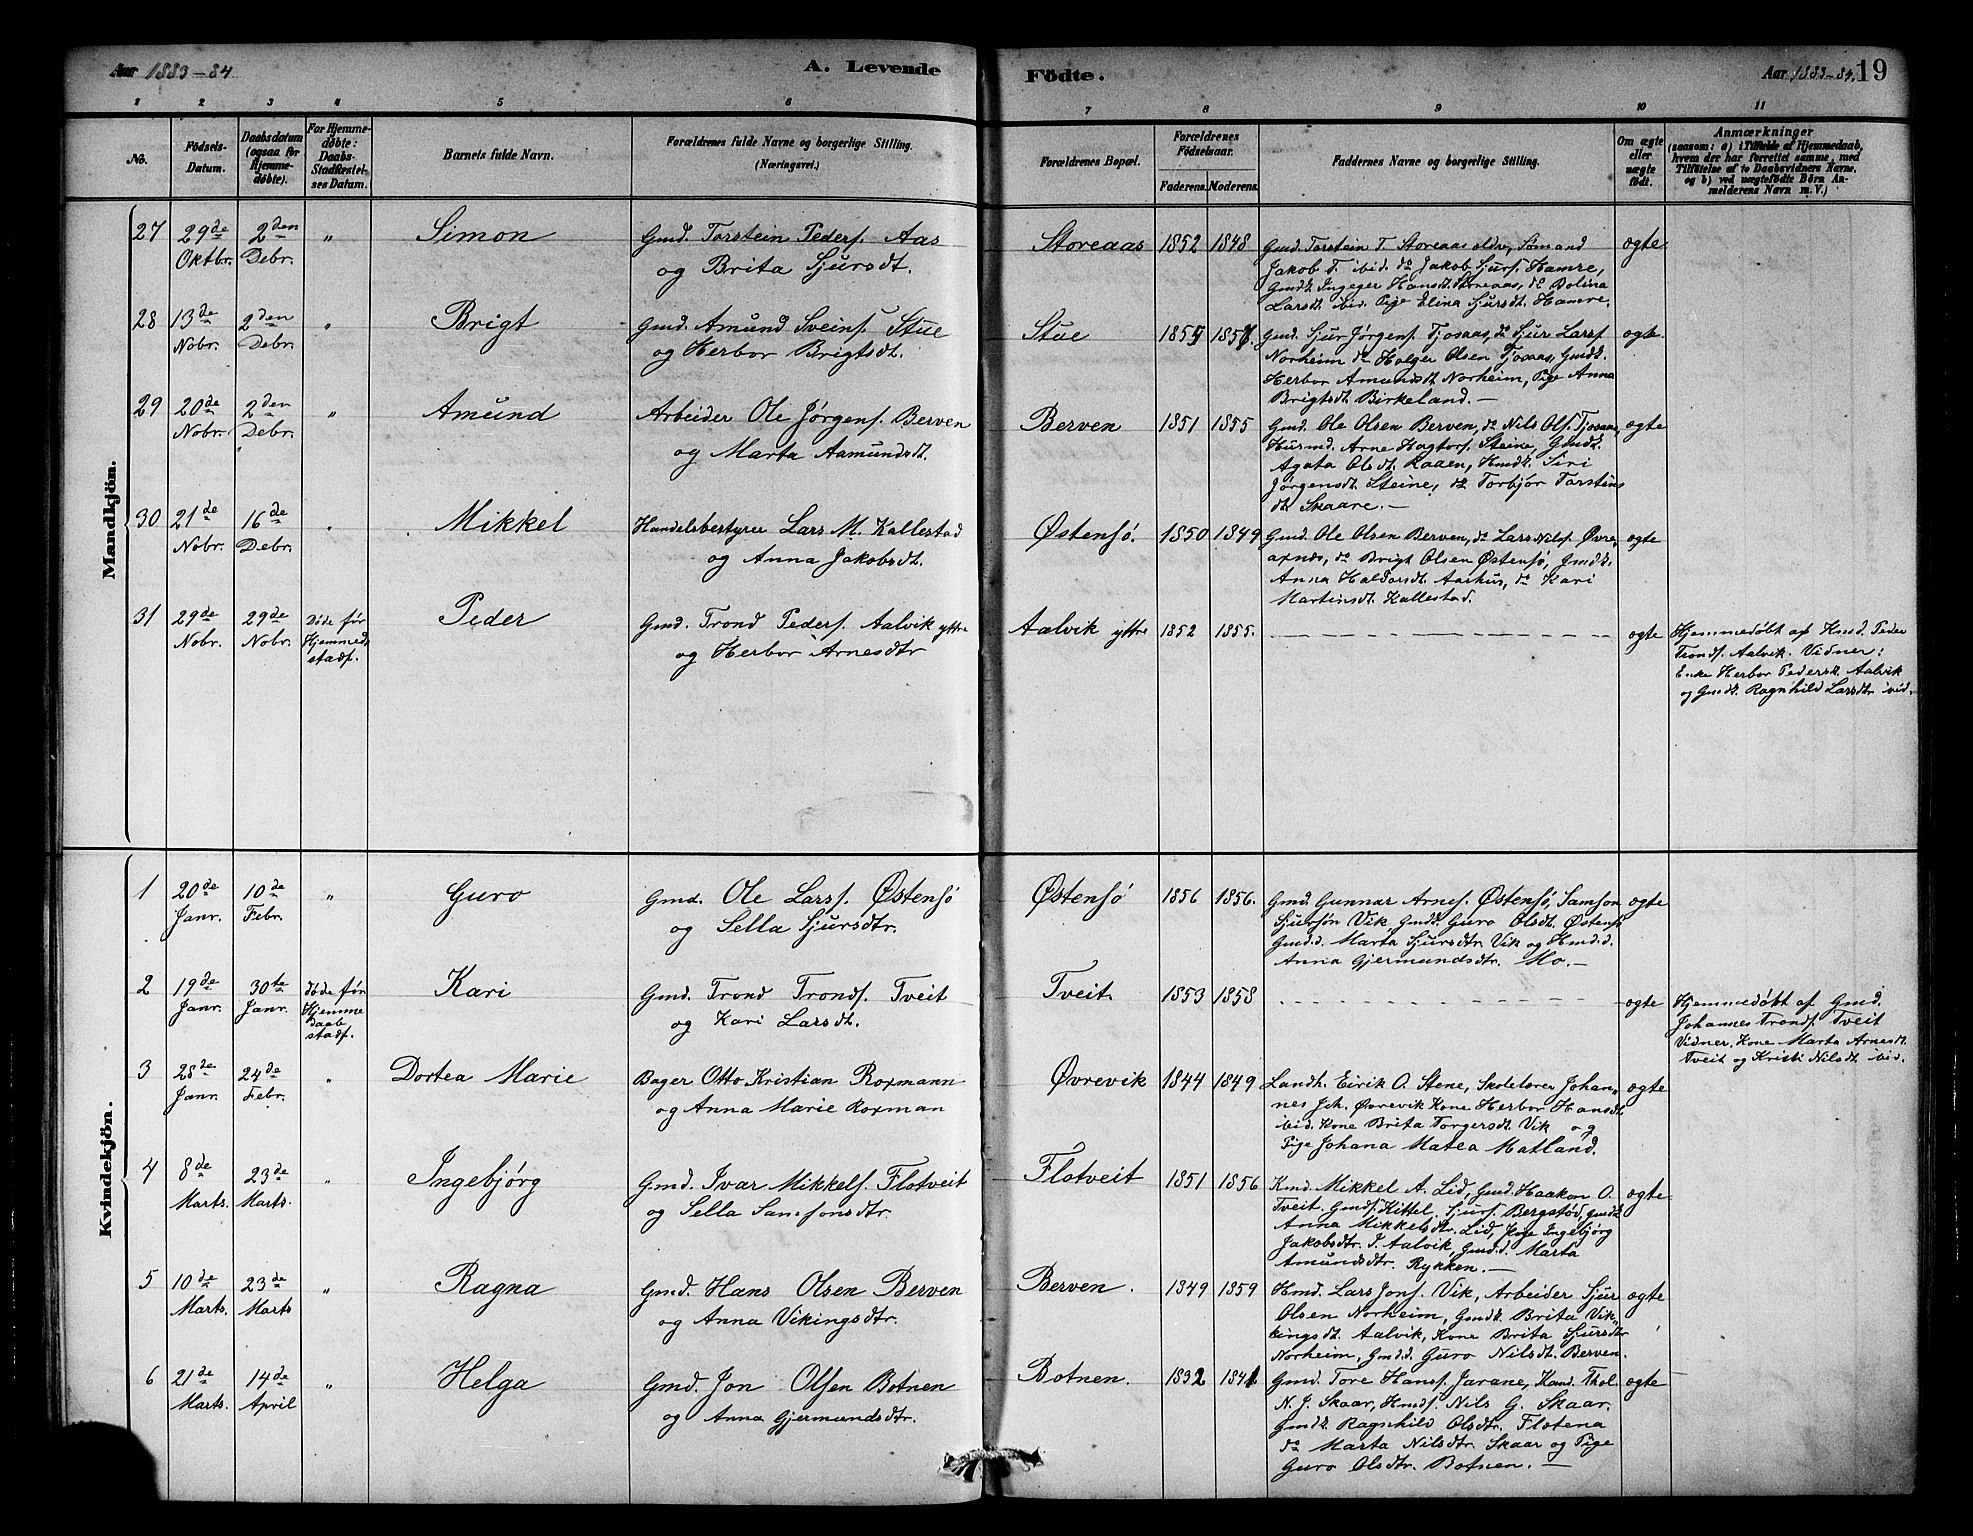 Aar 1883-84 A. Levende Födte. Aar 1883-84. 19
1 2 3 4 5 6 7 8 9 10 11
No. Födsels-Datum. Daabsdatum (ogsaa for Hjemmedöbte). For Hjemmedøbte: Daabs-Stadfæstelses Datum. Barnets fulde Navn. Forældrenes fulde Navne og borgerlige Stilling. (Næringsvei.) Forældrenes Bopæl. Forældrenes Födselsaar. Faderens. Moderens. Faddernes Navne og borgerlige Stilling. Om ægte eller uægte födt. Anmærkninger (saasom: a) i Tilfælde af Hjemmedaab, hvem der har forrettet samme, med Tilföielse af to Daabsvidners Navne, og b) ved uægtefödte Börn Anmelderens Navn m. V.)
Mandkjön.
27 29de Oktbr. 2den Debr. " Simon
Gmd. Torstein Peders. Aas
og Brita Sjursdt.
Storeaas 1852 1848
Gmd. Torstein T. Storeaas oldre, Sømand
Jakob T. ibid. do Jakob Sjurs. Hamre,
Gmdk. Ingeger Hansdt. Storeaas, do Bolina
Larsdt. ibid. Pige Elina Sjursdt. Hamre.
ogte
28 13de Nobr. 2den Debr. " Brigt
Gmd. Amund Sveins. Stue
og Herbor Brigtsdt.
Stue 1855 1857.
Gmd. Sjur Jørgens. Tjosaas, do Sjur Larss
Norheim do Holger Olsen Tjosaas, Gmdk.
Herbor Amundsdt. Norheim, Pige Anna
Brigtsdt. Birkeland. —
ogte
29 20de Nobr. 2den Debr. " Amund
Arbeider Ole Jørgens. Berven
og Marta Aamundsdt.
Berven 1851 1855
Gmd. Ole Olsen Berven, do Nils Ols. Tjosaas,
Husmd. Arne Hogtors. Steine, Gmdk.
Agata Olsdt. Raaen, Hmdk. Siri
Jørgensdt. Steine, do Torbjør Torsteins
dt. Skaare. —
ogte
30 21de Nobr. 16de Debr. " Mikkel
Handelsbestyrer Lars M. Kallestad
og Anna Jakobsdt.
Østensø. 1850 1849
Gmd. Ole Olsen Berven, do Lars Nils. Øvre-
axnes, do Brigt Olsen Østensø, Gmdk.
Anna Haldorsdt. Aarhus, do Kari
Martinsdt. Kallestad.
ogte
31 29de Nobr. 29de Nobr. Døde før Hjemmed stadf. Peder
Gmd. Trond Peders. Aalvik yttre
og Herbor Arnesdtr
Aalvik yttre 1852 1855.
ogte
Hjemmedøbt af Kmd. Peder
Tronds. Aalvik. Vidner:
Enke Herbor Pedersdt. Aalvik
og Gmdk. Ragnhild Larsdtr ibid.
Kvindekjön.
1 20de Janr. 10de Febr. " Guro
Gmd. Ole Larss. Østensø
og Sella Sjursdtr.
Østensø 1856 1856.
Gmd. Gunnar Arnes. Østensø, Samson
Sjursøn Vik, Gmdk. Guro Olsdt. Østensø
Gmd.d. Marta Sjursdtr. Vik og Hmd.d.
Anna Gjermundsdtr. Mo. —
ogte
2 19de Janr. 30te Janr. døde før Hjemme Daab stadf. Kari
Gmd. Trond Tronds. Tveit
og Kari Larsdt.
Tveit 1853 1858
ogte
Hjemmedøbt af Gmd.
Johannes Tronds. Tveit
Vidner. Kone Marta Arnesdt.
Tveit og Kristi Nilsdt. ibid.
3 28de Janr. 24de Febr. " Dortea Marie
Bager Otto Kristian Roxmann
og Anna Marie Roxman
Øvrevik 1844 1849
Landh. Eirik O. Stene, Skolelærer Johan-
nes Joh. Øvrevik Kone Herbor Hansdt
ibid. Kone Brita Torgersdt. Vik og
Pige Johana Matea Matland.
ogte
4 8de Marts. 23de Marts. " Ingebjørg
Gmd. Ivar Mikkels. Flotveit
og Sella Samsonsdtr.
Flotveit 1851 1856
Kmd. Mikkel A. Lid, Gmd. Haakon O.
Tveit. Gmds. Kittel Sjurs. Bergstød, Gmdk.
Anna Mikkelsdtr. Lid, Pige Ingebjørg
Jakobsdtr. I. Aalvik, Gmd.d. Marta
Amundsdtr. Rykken. —
ogte
5 10de Marts. 23de Marts " Ragna
Gmd. Hans Olsen Berven
og Anna Vikingsdtr.
Berven. 1849 1859
Hmd. Lars Jons. Vik, Arbeider Sjur
Olsen Norheim, Gmdk. Brita Vik-
kingsdt. Aalvik, Kone Brita Sjursdtr
Norheim, Gmd.d. Guro Nilsdt. Berven.
ogte
6 21de Marts. 14de April " Helga
Gmd. Jon Olsen Botnen
og Anna Gjermundsdtr.
Botnen. 1832 1841
Gmd. Tore Hans. Jarane, Kand. Thol.
N. J. Skaar, Hmds. Nils G. Skaar.
Gmdk. Ragnhild Olsdtr. Flotena
do Marta Nilsdtr. Skaar og Pige
Guro Olsdtr. Botnen. —
ogte